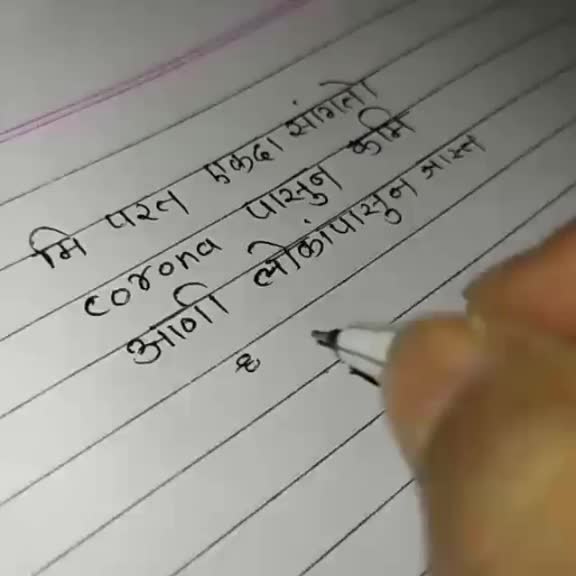 मि परत एकदा सांगतो
corona पासुन कमि
आणी लोकांपासुन जास्त